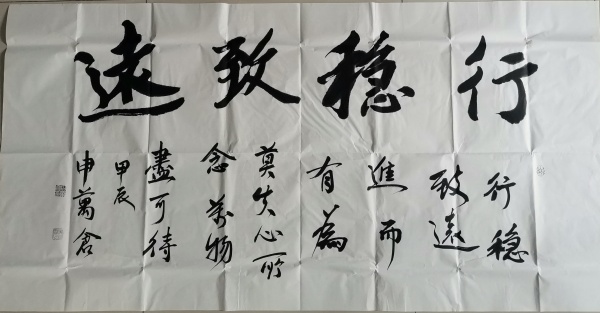 行稳致遠
行稳
致遠
進而
有為
莫失心所
念萬物
盡可待
甲辰
申萬倉